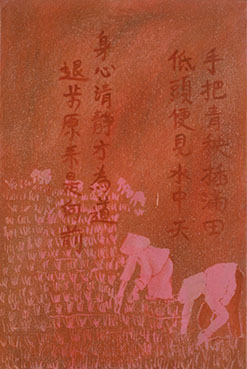 手把青秧插滿田
低頭便見水中天
身心清靜方為道
退步原來是向前